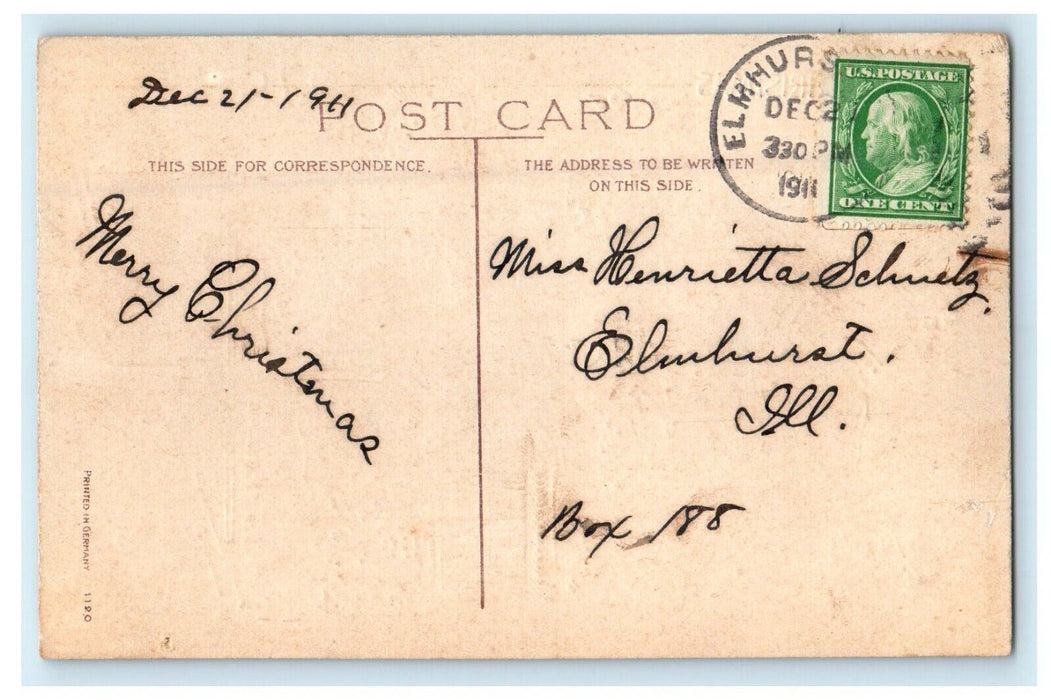 Dec 21-1911
POST CARD
THIS SIDE FOR CORRESPONDENCE.
THE ADDRESS TO BE WRITTEN
ON THIS SIDE.
ELMHURS
DEC 2
330 PM
1911
U.S. POSTAGE
ONE CENT
Merry Christmas
Miss Henrietta Schmetz,
Elmhurst.
Ill.
Box 188
PRINTED IN GERMANY 1120